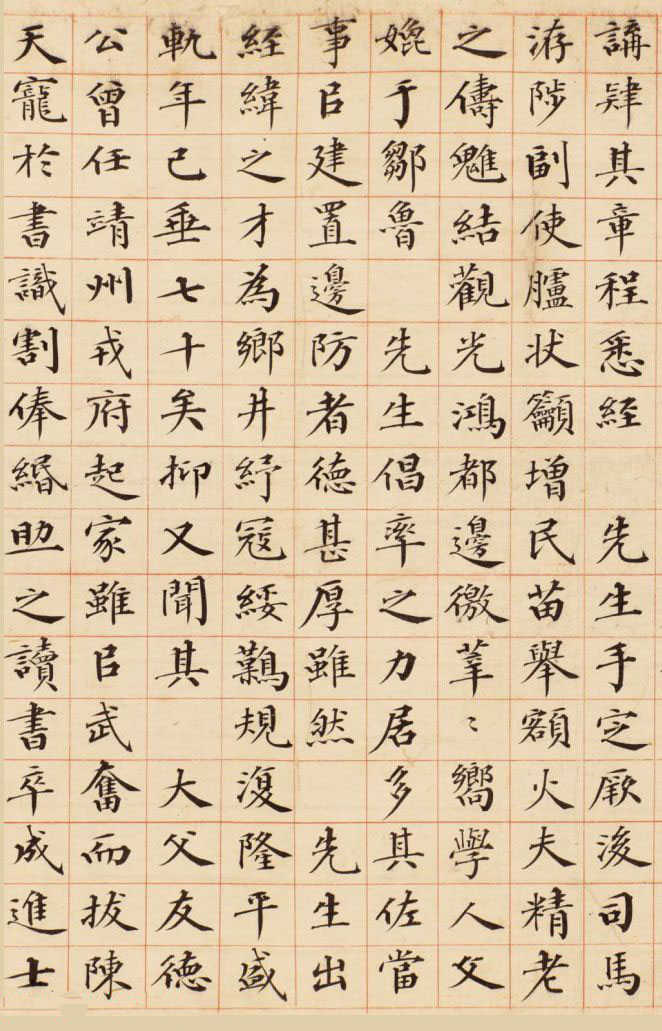 講肄其章程悉經先生手定厥後司馬
洊陟副使臚状籲增民苗舉額火夫精老
之儔魋結觀光鴻都邊徼莘〻嚮學人文
媲于鄒魯先生倡率之力居多其佐當
事㠯建置邊防者德甚厚雖然先生出
經緯之才為鄉井紓寇綏難規復隆平盛
軌年已垂七十矣抑又聞其大父友德
公曾任靖州戎府起家雖㠯武奮而拔陳
天寵於書識割俸緡助之讀書卒成進士